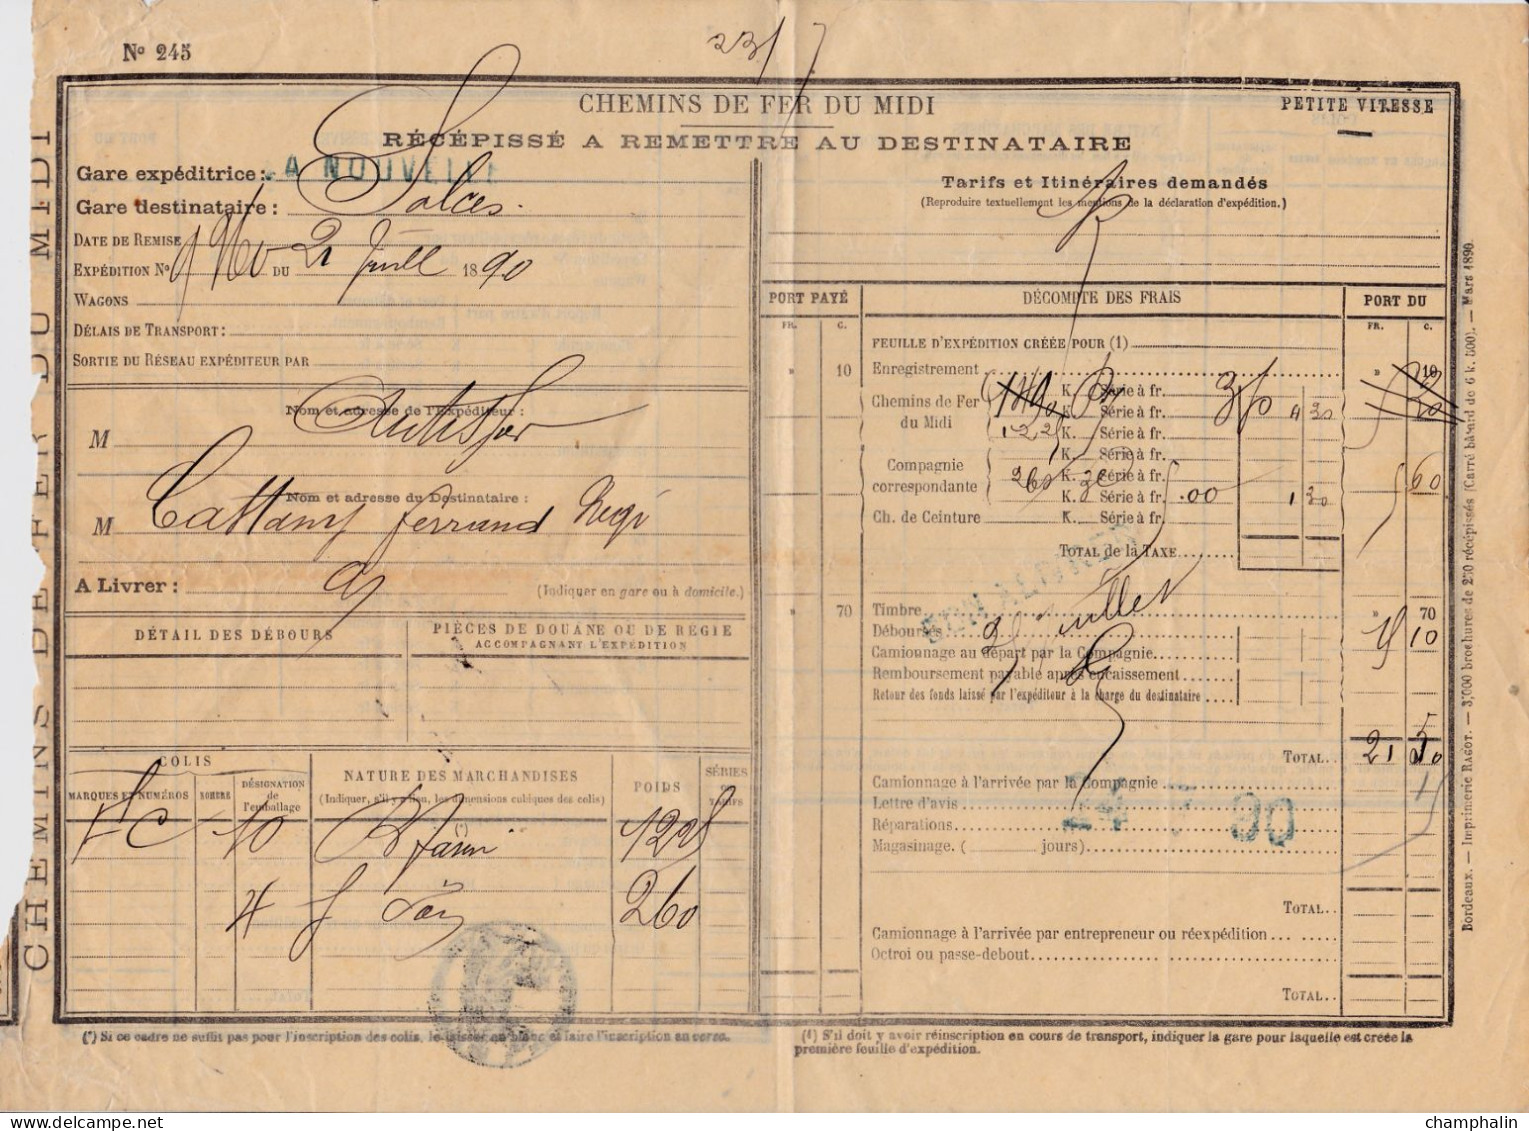 23/7
N° 245
CHEMINS DE FER DU MIDI
PETITE VITESSE
RÉCÉPISSÉ A REMETTRE AU DESTINATAIRE
Gare expéditrice : LA NOUVELLE
Gare destinataire : Salces.
DATE DE REMISE
EXPÉDITION N° 1960 DU 21 Juill 1890
WAGONS
DÉLAIS DE TRANSPORT :
SORTIE DU RÉSEAU EXPÉDITEUR PAR
Nom et adresse de l'Expéditeur :
M
Nom et adresse du Destinataire :
M Cattany ferrand
A LIVRER :
(Indiquer en gare ou à domicile.)
DÉTAIL DES DÉBOURS
PIÈCES DE DOUANE OU DE RÉGIE
ACCOMPAGNANT L'EXPÉDITION
COLIS
MARQUES ET NUMÉROS
NOMBRE
DÉSIGNATION
de
l'emballage
NATURE DES MARCHANDISES
(Indiquer, s'il y a lieu, les dimensions cubiques des colis)
(*)
POIDS
SÉRIES
TARIFS
FC 10 B farin 1225
4 260
(*) Si ce cadre ne suffit pas pour l'inscription des colis, le laisser en blanc et faire l'inscription au verso.
Tarifs et Itinéraires demandés
(Reproduire textuellement les mentions de la déclaration d'expédition.)
PORT PAYÉ
DÉCOMPTE DES FRAIS
PORT DU
FR. C.
FR. C.
FEUILLE D'EXPÉDITION CRÉÉE POUR (1)
» 10 Enregistrement » 10
Chemins de Fer
du Midi
K. Série à fr.
K. Série à fr. 4 20
1225 K. Série à fr.
Compagnie
correspondante
K. Série à fr.
260 K. Série à fr.
K. Série à fr. 1 20
60
Ch. de Ceinture K. Série à fr.
TOTAL de la TAXE
» 70 Timbre » 70
Débours 15 10
Camionnage au départ par la Compagnie
Remboursement payable après encaissement
Retour des fonds laissé par l'expéditeur à la charge du destinataire
TOTAL. 21
Camionnage à l'arrivée par la Compagnie
Lettre d'avis
Réparations
Magasinage. ( jours)
24 7 90
TOTAL..
Camionnage à l'arrivée par entrepreneur ou réexpédition
Octroi ou passe-debout
TOTAL..
(1) S'il doit y avoir réinscription en cours de transport, indiquer la gare pour laquelle est créée la
première feuille d'expédition.
CHEMINS DE FER DU MIDI
Bordeaux. — Imprimerie RAGOT. — 3,000 brochures de 250 récépissés (Carré bâtard de 6 k. 500). — Mars 1890.
champhalin